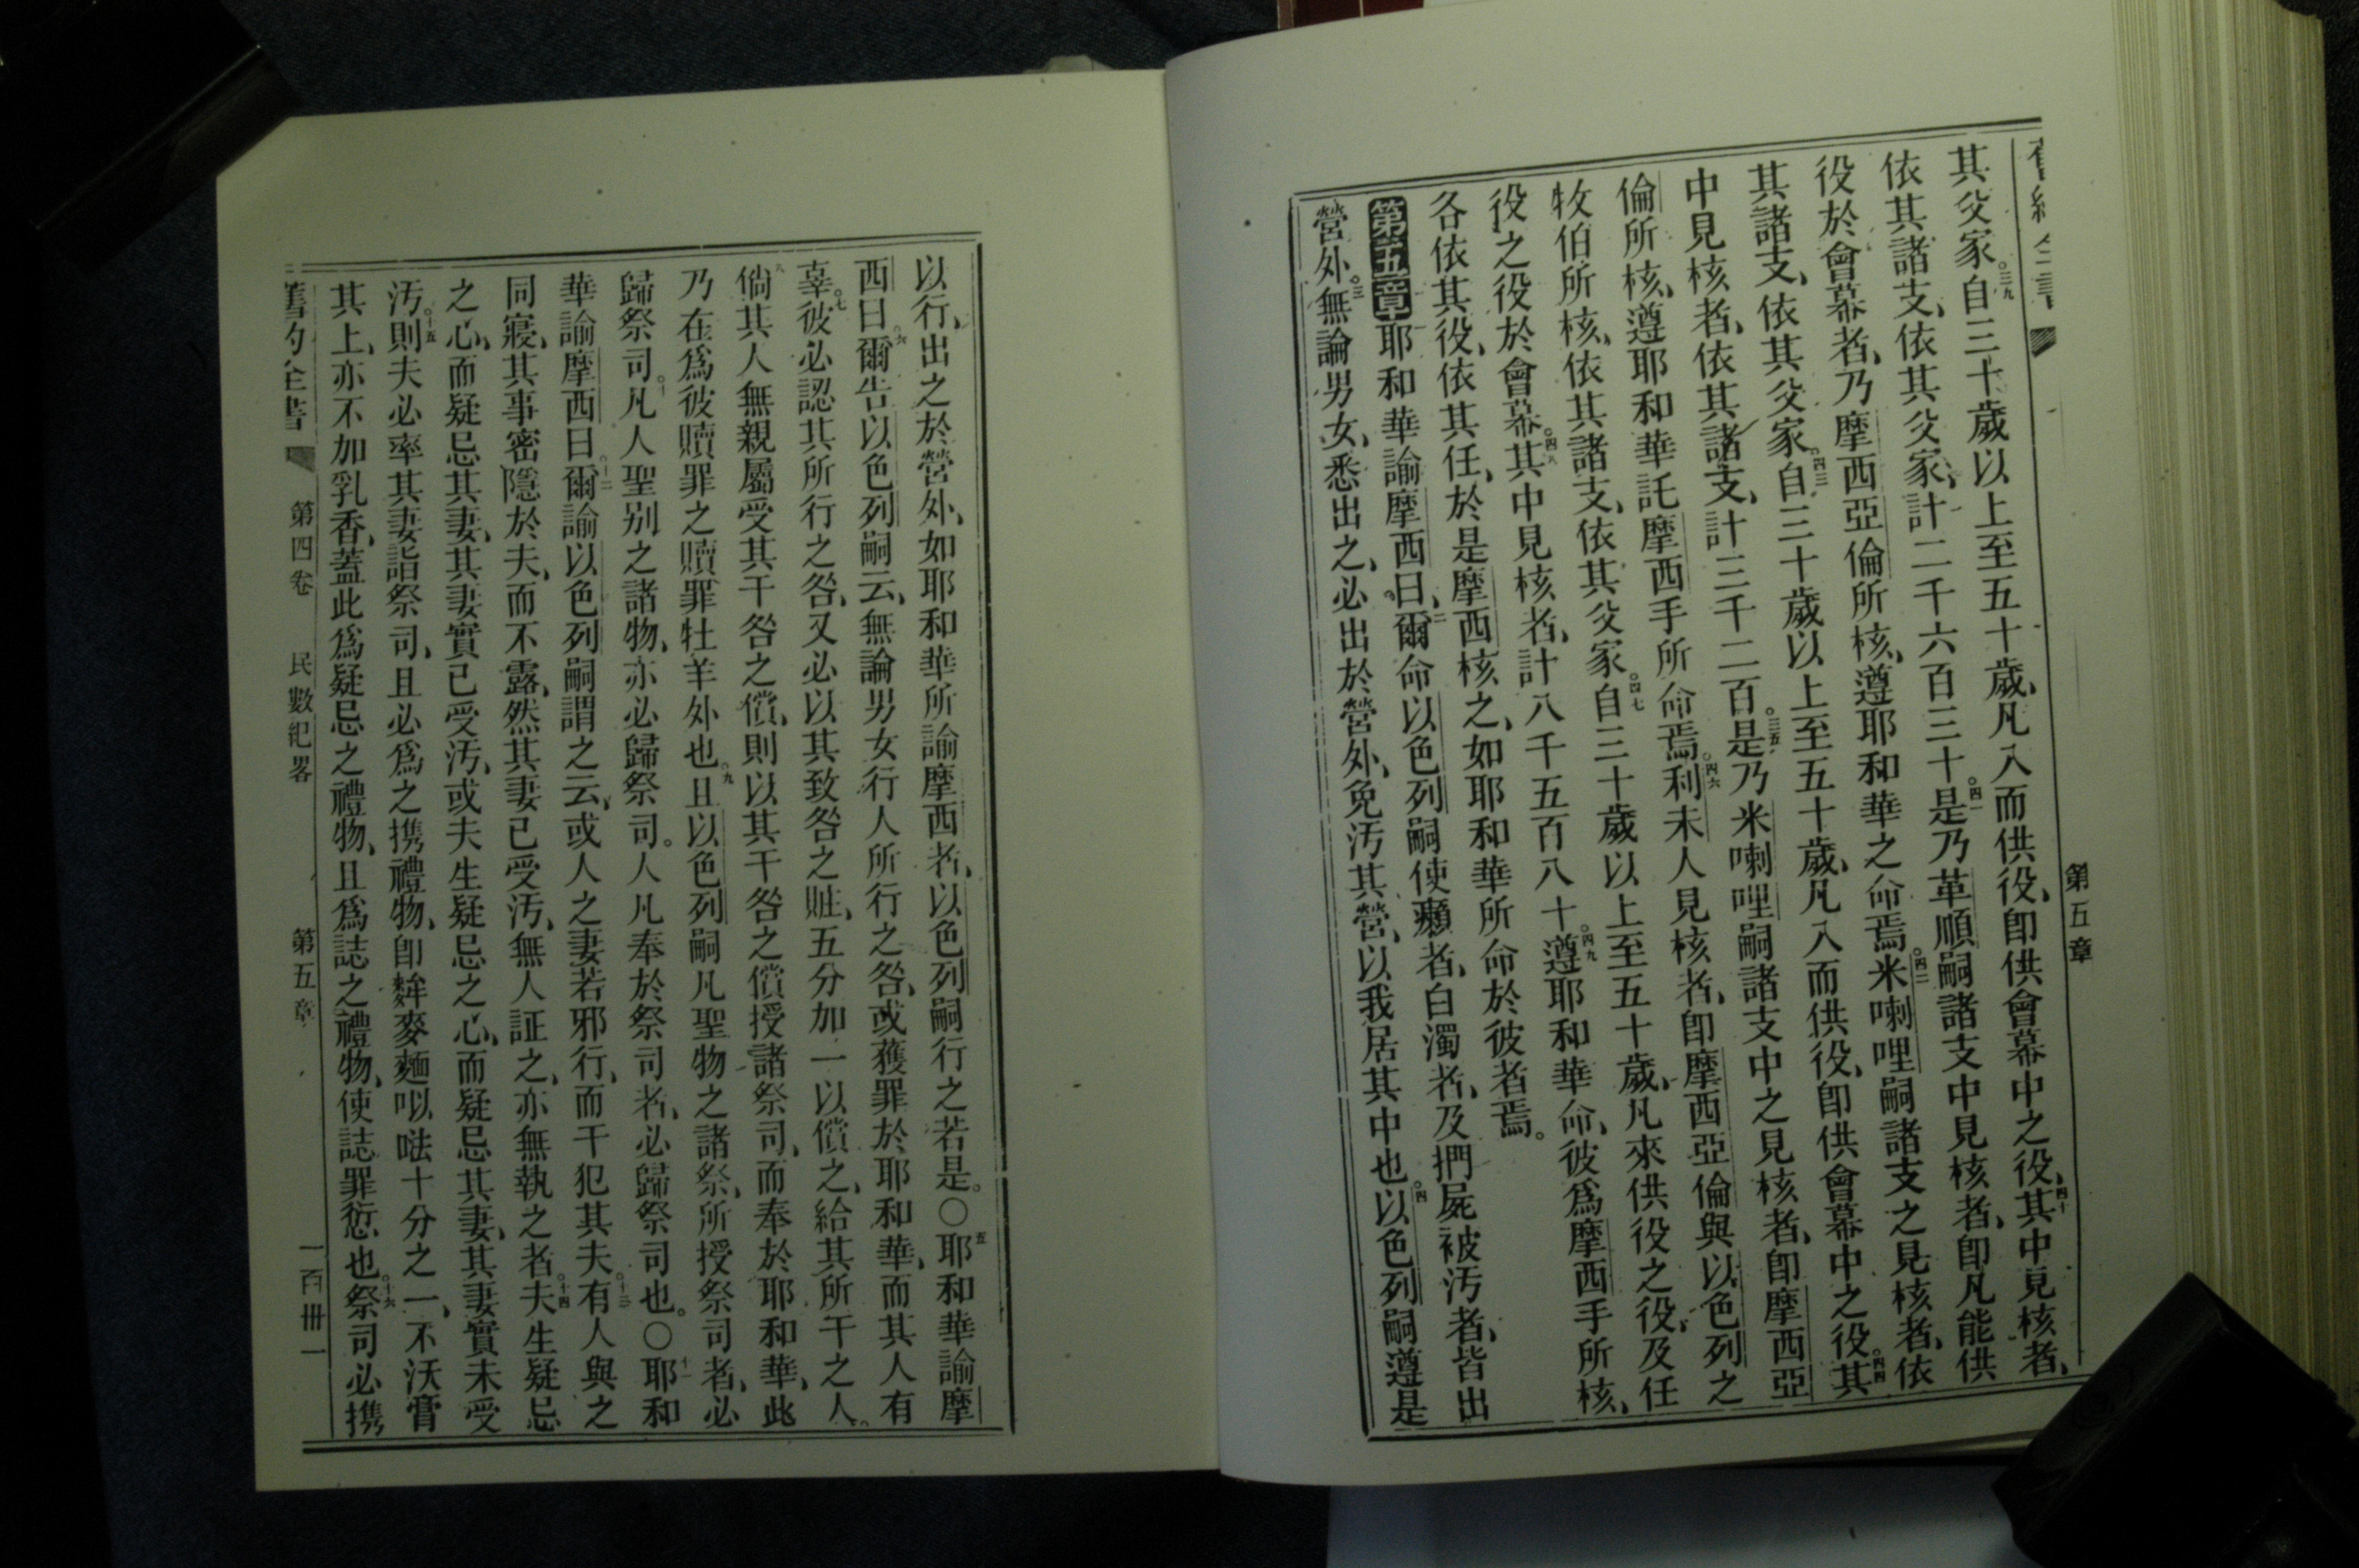 其父家。三九自三十歲以上至五十歲、凡入而供役、卽供會幕中之役、四十其中見核者、
依其諸支、依其父家、計二千六百三十。四一是乃革順嗣諸支中見核者、卽凡能供
役於會幕者、乃摩西亞倫所核、遵耶和華之命焉。四二米喇哩嗣諸支之見核者、依
其諸支、依其父家。四三自三十歲以上至五十歲、凡入而供役、卽供會幕中之役。四四其
中見核者、依其諸支、計三千二百。四五是乃米喇哩嗣諸支中之見核者、卽摩西亞
倫所核、遵耶和華託摩西手所命焉。四六利未人見核者、卽摩西亞倫與以色列之
牧伯所核、依其諸支、依其父家。四七自三十歲以上至五十歲、凡來供役之役、及任
役之役於會幕。四八其中見核者、計八千五百八十。四九遵耶和華命、彼爲摩西手所核、
各依其役、依其任、於是摩西核之、如耶和華所命於彼者焉。
第五章耶和華諭摩西曰、二爾命以色列嗣使癩者、白濁者、及捫屍被汚者、皆出
營外。三無論男女、悉出之、必出於營外、免汚其營、以我居其中也。四以色列嗣遵是
第五章
以行、出之於營外、如耶和華所諭摩西者、以色列嗣行之若是。〇五耶和華諭摩
西曰。六爾告以色列嗣云、無論男女行人所行之咎、或獲罪於耶和華、而其人有
辜。七彼必認其所行之咎、又必以其致咎之贓、五分加一以償之、給其所干之人。
八倘其人無親屬受其干咎之償、則以其干咎之償授諸祭司、而奉於耶和華、此
乃在爲彼贖罪之贖罪牡羊外也。九且以色列嗣凡聖物之諸祭、所授祭司者、必
歸祭司。十凡人聖別之諸物、亦必歸祭司。人凡奉於祭司者、必歸祭司也。〇十一耶和
華諭摩西曰。十二爾諭以色列嗣謂之云、或人之妻若邪行、而干犯其夫。十三有人與之
同寢、其事密隱於夫、而不露、然其妻已受汚、無人証之、亦無執之者。十四夫生疑忌
之心、而疑忌其妻、其妻實已受汚、或夫生疑忌之心、而疑忌其妻、其妻實未受
汚。十五則夫必率其妻詣祭司、且必爲之携禮物、卽麰麥麵㕥𠵽十分之一、不沃膏
其上、亦不加乳香、蓋此爲疑忌之禮物、且爲誌之禮物、使誌罪愆也。十六祭司必携
舊約全書 第四卷 民數紀畧 第五章 一百卅一